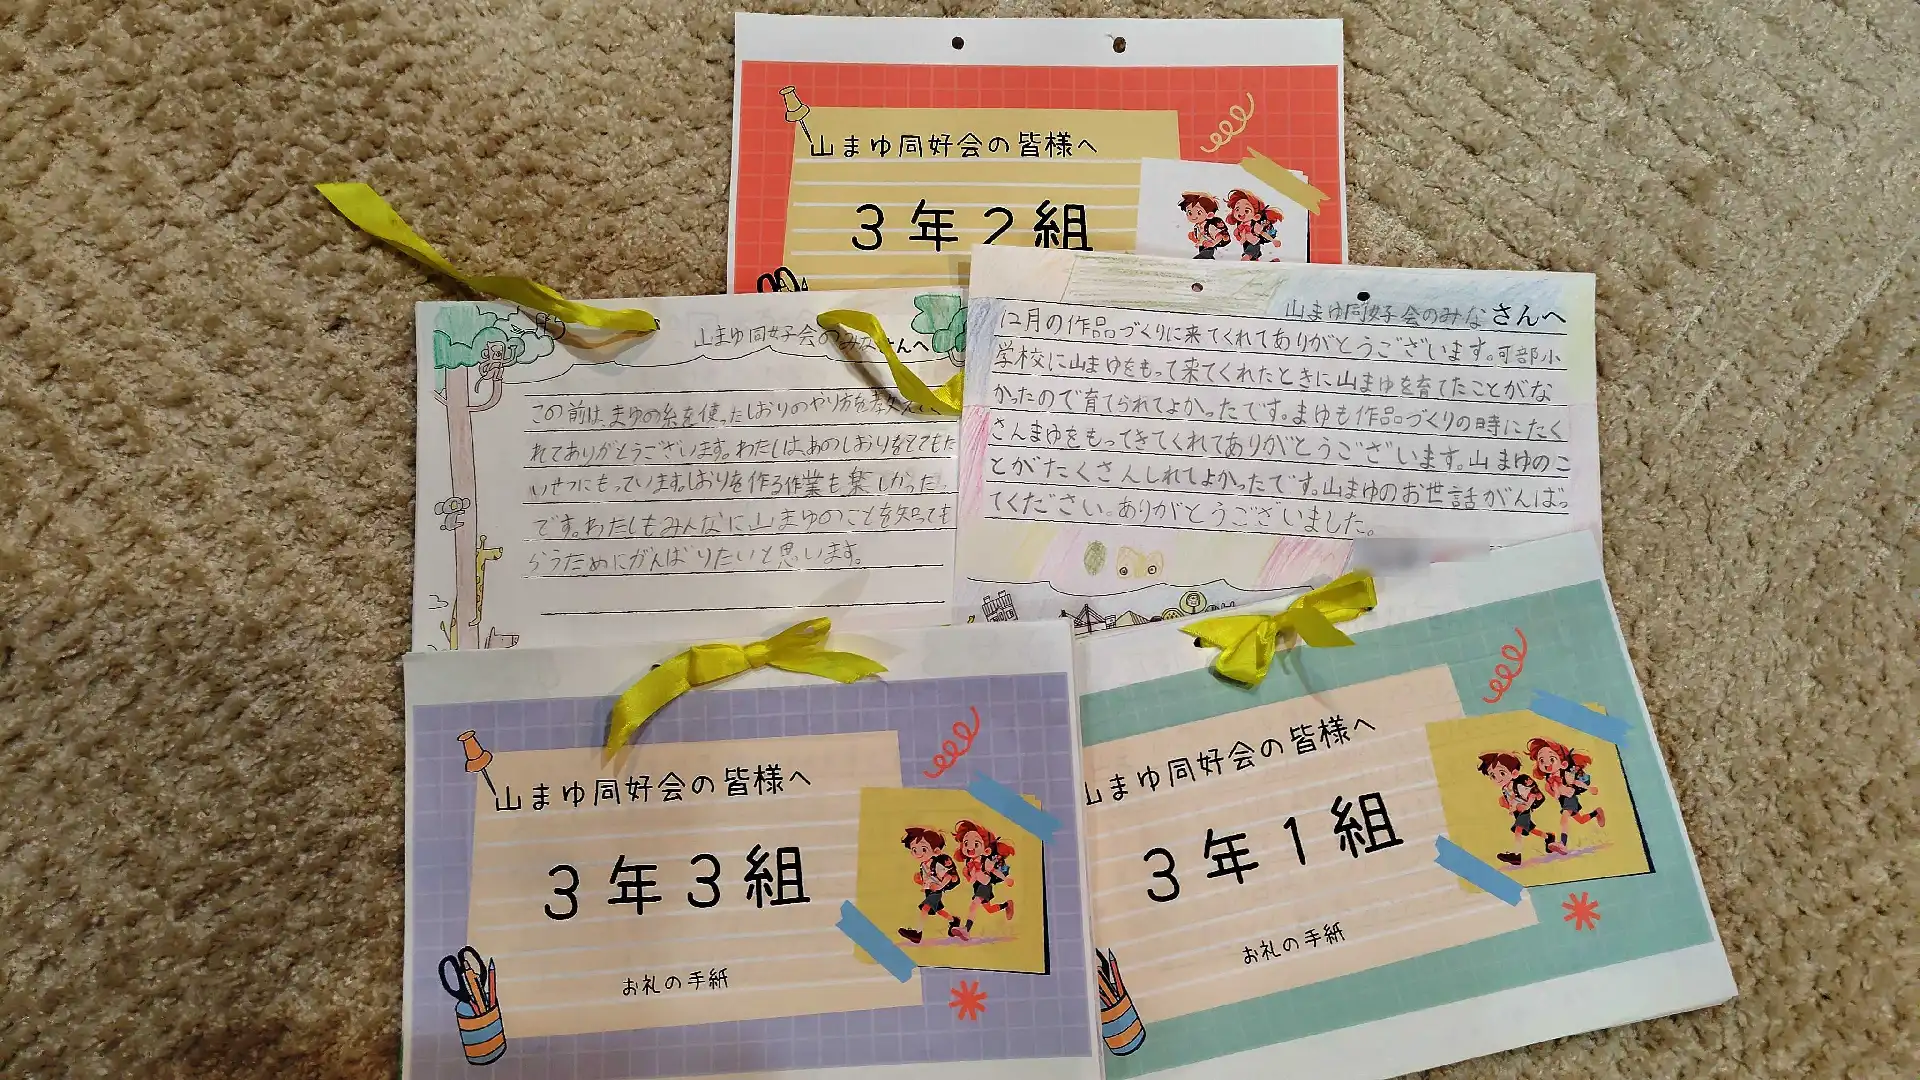 山まゆ同好会の皆様へ
3年2組
山まゆ同好会のみなさんへ
この前は、まゆの糸を使ったしおりのやり方を教えて
れてありがとうございます。わたしは、あのしおりをとてもた
いせつにもっています。しおりを作る作業も楽しかった
です。わたしもみんなに山まゆのことを知っても
らうためにがんばりたいと思います。
山まゆ同好会のみなさんへ
12月の作品づくりに来てくれてありがとうございます。可部小
学校に山まゆをもって来てくれたときに山まゆを育てたことがな
かったので育てられてよかったです。まゆも作品づくりの時にたく
さんまゆをもってきてくれてありがとうございます。山まゆのこ
とがたくさんしれてよかったです。山まゆのお世話がんばっ
てください。ありがとうございました。
山まゆ同好会の皆様へ
3年3組
お礼の手紙
山まゆ同好会の皆様へ
3年1組
お礼の手紙